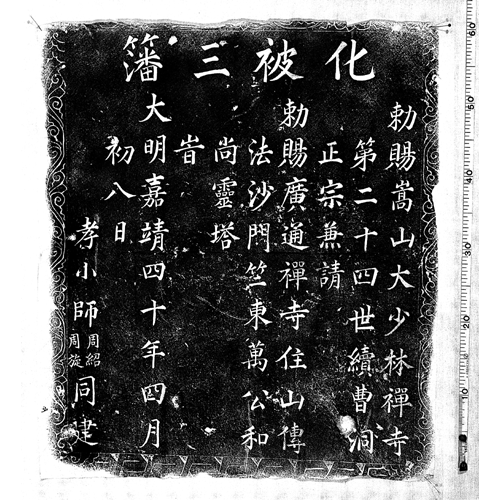 化被三籓
勅賜嵩山大少林禪寺
第二十四世續曹洞
正宗兼請
勅賜廣通禪寺住山傳
法沙門竺東萬公和
尚靈塔
旹
大明嘉靖四十年四月
初八日
孝小師周紹周旋同建
60
50
40
30
20
10